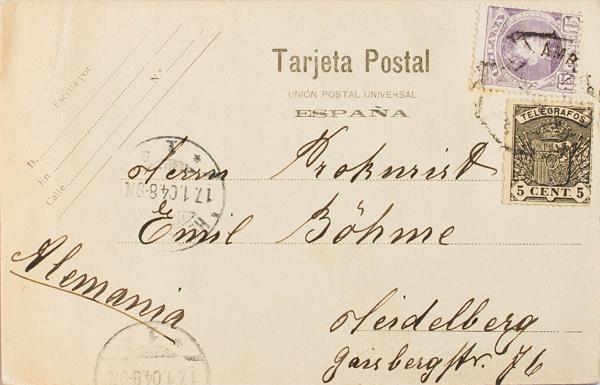 Tarjeta Postal
UNIÓN POSTAL UNIVERSAL
ESPAÑA
Escrita por
D.
En
Nº
Calle
TELÉGRAFOS
5 CENT. 5
Herrn Prokurist
Emil Böhme
Alemania
Heidelberg
Gaisbergstr. 76
17.1.04.8-9N
17.1.04.8-9N